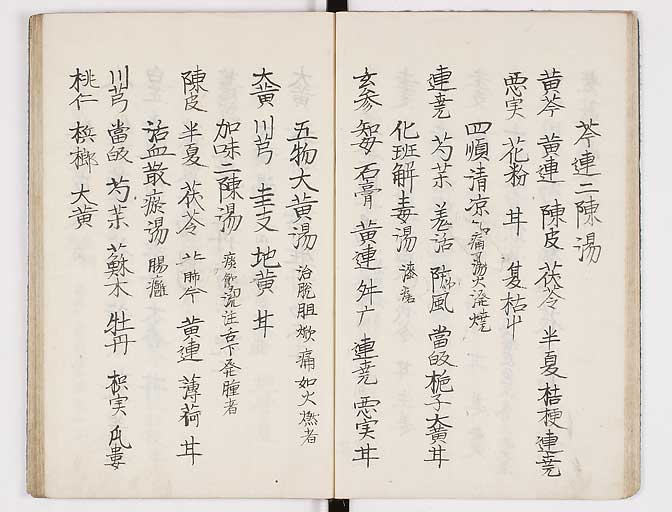 芩連二陳湯
黄芩 黄連 陳皮 茯苓 半夏 桔梗 連尭
悪実 花粉 丼 夏枯艸
四順清凉 痛 湯火発焼
連尭 芍茱 羗活 防風 當皈 梔子 大黄 丼
化班解毒湯 漆瘡
玄参 知母 石膏 黄連 舛广 連尭 悪実 丼
五物大黄湯 治脱胆 痛如火燃者
大黄 川芎 圭支 地黄 丼
加味二陳湯 痰飲 注舌下発腫者
陳皮 半夏 茯苓 黄芩 黄連 薄荷 丼
活血散瘀湯 腸癰
川芎 當皈 芍茱 蘇木 牡丹 枳実 瓜蔞
桃仁 梹榔 大黄